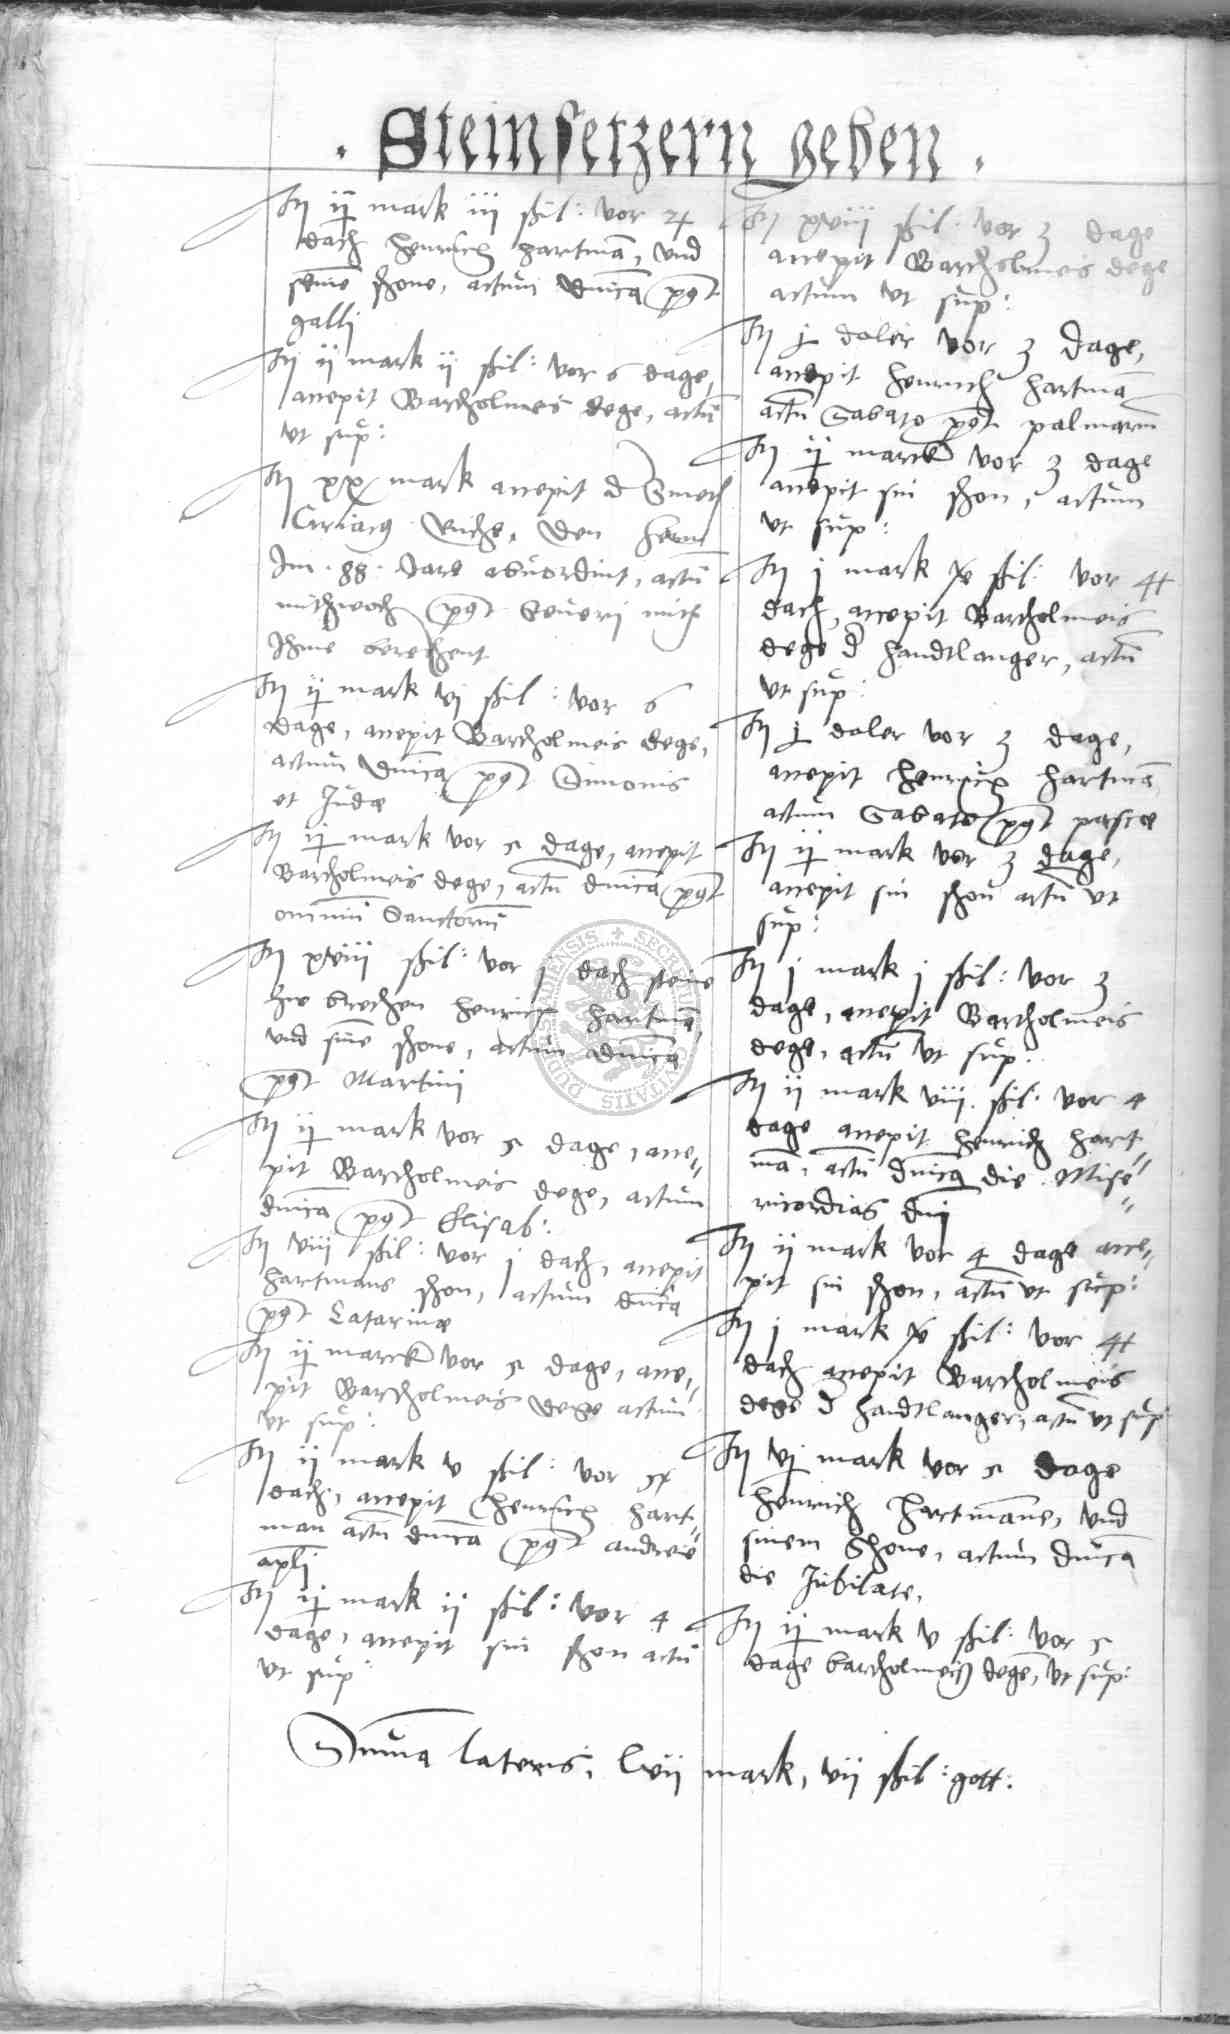 . Steinsetzern geben .
It ij mark iij ßil: vor 24
dach henrich hartmā, und
sēme shone, actum dnīca pꝯt
galli
It ij mark ij ßil: vor 6 dage,
accepit Bartholmeis dege, actū
ut sup:
It xx mark accepit d Smeth
Ciriacꝯ den
Im . 88 . Jare actū
mithwoch pꝯt Severi mith
Ihme berechent
It ij mark vj ßil: vor 6
dage, accepit Bartholmeis dege,
actum dnīca pꝯt Simonis
et Judae
It ij mark vor 5 dage, accepit
Bartholmeis dege, actū dnīca pꝯt
omniū Sanctorū
It xviij ßil: vor j dach steine
zu brechen henrich hartmā,
und sīne shone, actum dnīca
pꝯt Martini
It ij mark vor 5 dage, acce„
pit Bartholmeis dege, actum
dnīca pꝯt Elisab:
It viij ßil: vor j dach, accepit
hartmans shon, actum dnīca
pꝯt Catarinae
It ij marck vor 5 dage, acce„
pit Bartholmeis dege actum
ut sup:
It ij mark v ßil: vor
dach, accepit henrich hart„
man actū dnīca pꝯt andreae
apl̄i
It ij mark ij ßil: vor 4
dage, accepit sin shon actū
ut sup:
It xviij ßil: vor 3 dage
accepit Bartholmeis dege
actum ut sup:
It j daler vor 3 dage,
accepit henrich hartmā
actū Sabato pꝯt palmarū
It ij marck vor 3 dage
accepit sin shon, actum
ut sup:
It j mark x ßil: vor 4
dach, accepit Bartholmeis
dege d handtlanger, actū
ut sup:
It j daler vor 3 dage,
accepit henrich hartmā
actum Sabato pꝯt pascae
It ij mark vor 3 dage,
accepit sin shon actū ut
sup:
It j mark j ßil: vor 3
dage, accepit Bartholmeis
dege, actū ut sup:
It ij mark viij ßil: vor 4
dage accepit henrich hart„
mā, actū dnīca die Mise„
ricordias dnī
It ij mark vor 4 dage acce„
pit sin shon, actū ut sup:
It j mark x ßil: vor 4
dach accepit Bartholmeis
dege d handtlanger, actū ut sup
It vj mark vor 5 dage
henrich hartmāne, und
sinem Shone, actum dnīca
die Jubilate,
It ij mark v ßil: vor 5
dage bartholmeiß degē, ut sup:
Sumā lateris, lvij mark, vij ßil: gott:
SECRET CIVITATIS DUDERSTADIENSIS